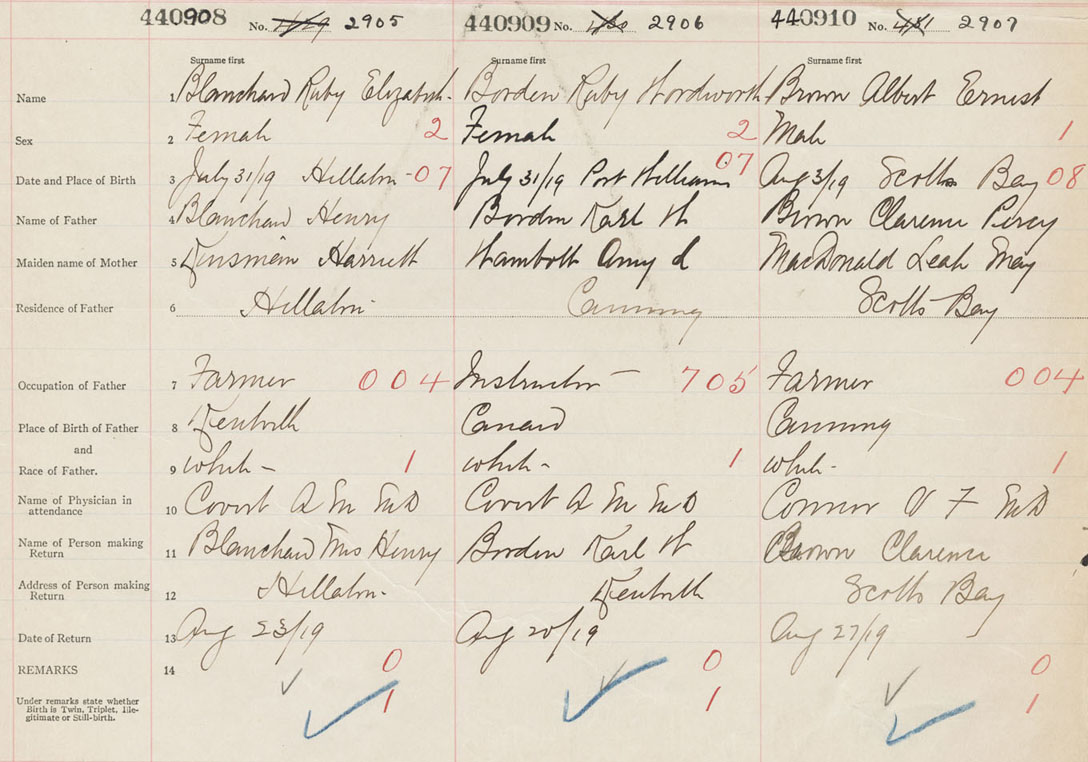 440908 No. 2905 440909 No. 2906 440910 No. 481 2907
Surname first Surname first Surname first
Name 1 Blanchard Ruby Elizabeth Borden Ruby Wordworth Brown Albert Ernest
Sex 2 Female 2 Female 2 Male 1
Date and Place of Birth 3 July 31/19 Hillaton 07 July 31/19 Port Williams 07 Aug 3/19 Scotts Bay 08
Name of Father 4 Blanchard Henry Borden Karl W Brown Clarence Percy
Maiden name of Mother 5 Kinsman Harriett Wambolt Amy L MacDonald Leah May
Residence of Father 6 Hillaton Canning Scotts Bay
Occupation of Father 7 Farmer 004 Instructor 705 Farmer 004
Place of Birth of Father 8 Kentville Canard Canning
and
Race of Father. 9 white - 1 white - 1 white - 1
Name of Physician in
attendance 10 Covert A M MD Covert A M MD Connor V F MD
Name of Person making
Return 11 Blanchard Mrs Henry Borden Karl W Brown Clarence
Address of Person making
Return 12 Hillaton Kentville Scotts Bay
Date of Return 13 Aug 23/19 Aug 20/19 Aug 27/19
REMARKS 14 0 0 0
Under remarks state whether
Birth is Twin, Triplet, Ille-
gitimate or Still-birth. 1 1 1